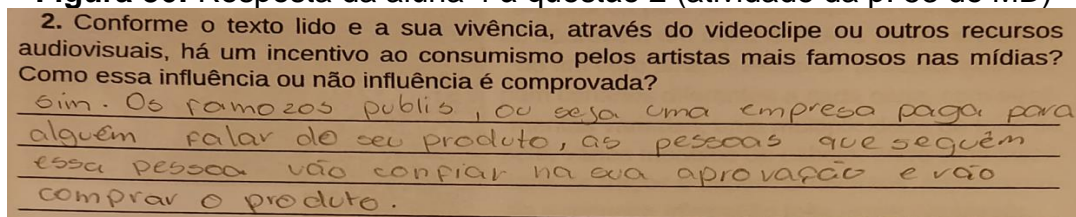 2. Conforme o texto lido e a sua vivência, através do videoclipe ou outros recursos
audiovisuais, há um incentivo ao consumismo pelos artistas mais famosos nas mídias?
Como essa influência ou não influência é comprovada?
sim. Os famozos publis, ou seja uma empresa paga para
alguém falar do seu produto, as pessoas que seguêm
essa pessoa vão confiar na sua aprovação e vão
comprar o produto.